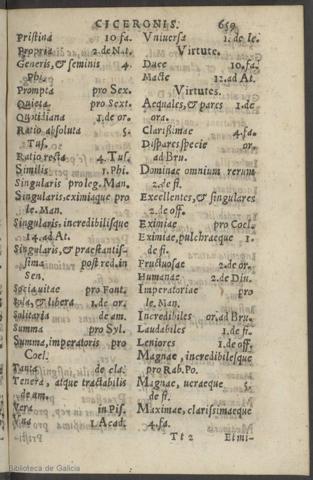 CICERONIS. 659
Pristina 10. fa.
Propria 2. de Nat.
Generis, & seminis 4.
Phi.
Prompta pro Sex.
Quieta pro Sext.
Quotidiana 1. de or.
Ratio absoluta 5.
Tus.
Ratio recta 4. Tus.
Similis 1. Phi.
Singularis pro leg. Man.
Singularis, eximiaque pro
le. Man.
Singularis, incredibilisque
14. ad At.
Singularis, & præstantis-
sima post red. in
Sen.
Socia vitae pro Font.
Sola, & libera 1. de or.
Solitaria de am.
Summa pro Syl.
Summa, imperatoris pro
Coel.
Tanta de cla.
Tenera, atque tractabilis
de am.
Vera in Pis.
Vna 1. Acad.
Vniuersa 1. de le.
Virtute.
Duce 10. fa.
Macte 12. ad At.
Virtutes.
Aequales, & pares 1. de
ora.
Clarissimae 4. fa.
Dispares specie or.
ad Bru.
Dominae omnium rerum
2. de fi.
Excellentes, & singulares
2. de off.
Eximiae pro Coel.
Eximiae, pulchraeque 1.
de fi.
Fructuosae 2. de or.
Humanae 2. de Diu.
Imperatoriae pro
le. Man.
Incredibiles or. ad Bru.
Laudabiles 1. de fi.
Leniores 1. de off.
Magnae, incredibilesque
pro Rab. Po.
Magnae, ueraeque 5.
de fi.
Maximae, clarissimaeque
4. fa.
Tt 2 Eimi-
Biblioteca de Galicia